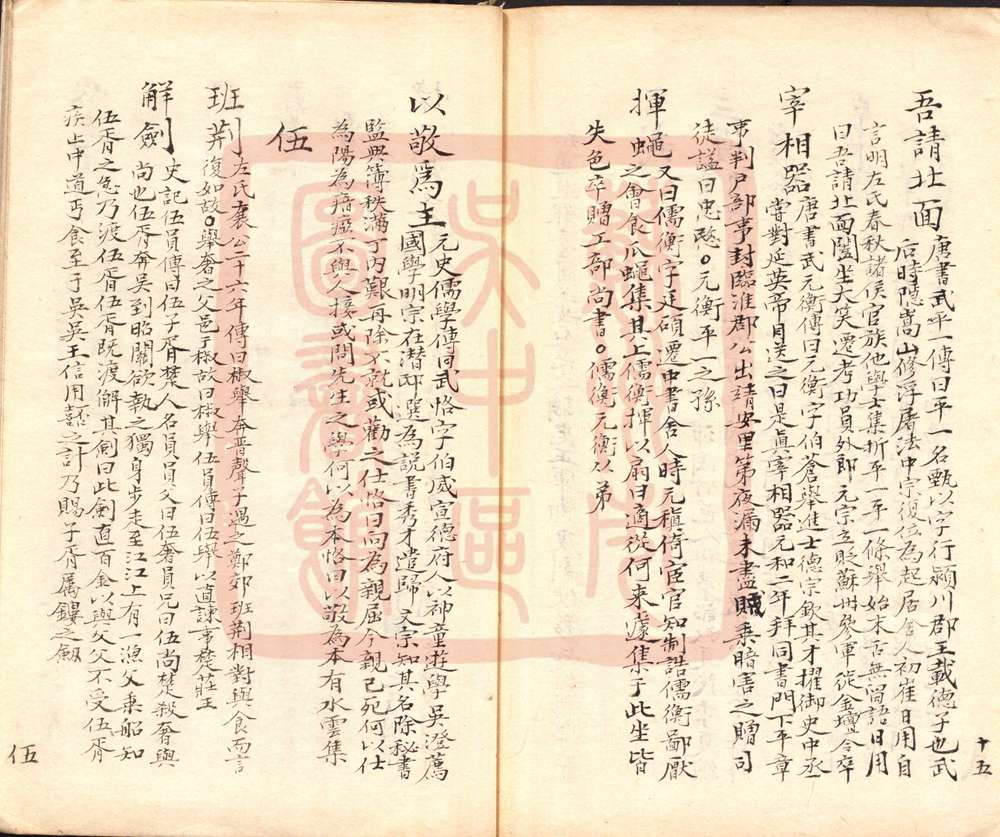 十五
吾請北面 唐書武平一傳曰平一名甄以字行潁川郡王載德子也武
后時隱嵩山修浮屠法中宗復位為起居舍人初崔日用自
言明左氏春秋諸侯官族他學士集折平一平一條舉始末古無留語日用
曰吾請北面闔坐大笑遷考功員外郎元宗立貶蘇州參軍徙金壇令卒
宰相器 唐書武元衡傳曰元衡字伯蒼舉進士德宗欽其才擢御史中丞
嘗對延英帝目送之曰是真宰相器元和二年拜同書門下平章
事判戶部事封臨淮郡公出靖安里第夜漏未盡賊乘暗害之贈司
徒諡曰忠愍○元衡平一之孫
揮蠅 又曰儒衡字廷碩遷中書舍人時元稹倚宦官知制誥儒衡鄙厭
之會食瓜蠅集其上儒衡揮以扇曰適從何來遽集于此坐皆
失色卒贈工部尚書○儒衡元衡從弟
以敬為主 元史儒學傳曰武恪字伯威宣德府人以神童遊學吳澄薦
國學明宗在潛邸選為說書秀才遣歸 文宗知其名除秘書
監典簿秩滿丁內艱再除不就或勸之仕恪曰向為親屈今親已死何以仕
為陽為瘖瘂不與人接或問先生之學何以為本恪曰以敬為本有水雲集
伍
班荆 左氏襄公二十六年傳曰椒舉奔晉聲子遇之鄭郊班荆相對與食而言
復如故○舉奢之父邑于椒故曰椒舉 伍員傳曰伍舉以直諫事楚莊王
解劍 史記伍員傳曰伍子胥楚人名員員父曰伍奢員兄曰伍尚楚殺奢與
尚也伍胥奔吳到昭關欲執之獨身步走至江江上有一漁父乘船知
伍胥之急乃渡伍胥伍胥既渡解其劍曰此劍直百金以與父父不受伍胥
疾止中道丐食至于吳吳王信用嚭之計乃賜子胥屬鏤之劔
伍